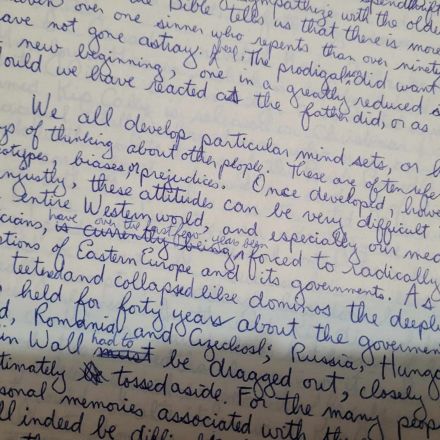 sympathize with the olde
over one sinner who repents than over ninet
the Bible tells us that there is mor
ave not gone astray. the prodigal did want
new beginning, one in a greatly reduced s
ould we have reacted as the father did, or as
We all develop particular mind sets, or h
ys of thinking about other people. These are often refe
eotypes, biases, prejudices. Once developed, how
njustly, these attitudes can be very difficult
entire Western world, and especially our med
icians, have over the last few years been forced to radically
ations of Eastern Europe and its governments. As
teetered and collapsed like dominos the deepl
held for forty years about the governmen
d, Romania, and Czeckosl; Russia, Hunga
in Wall had to be dragged out, closely
timately tossed aside. For the many peop
sonal memories associated with th
ll indeed be diffi